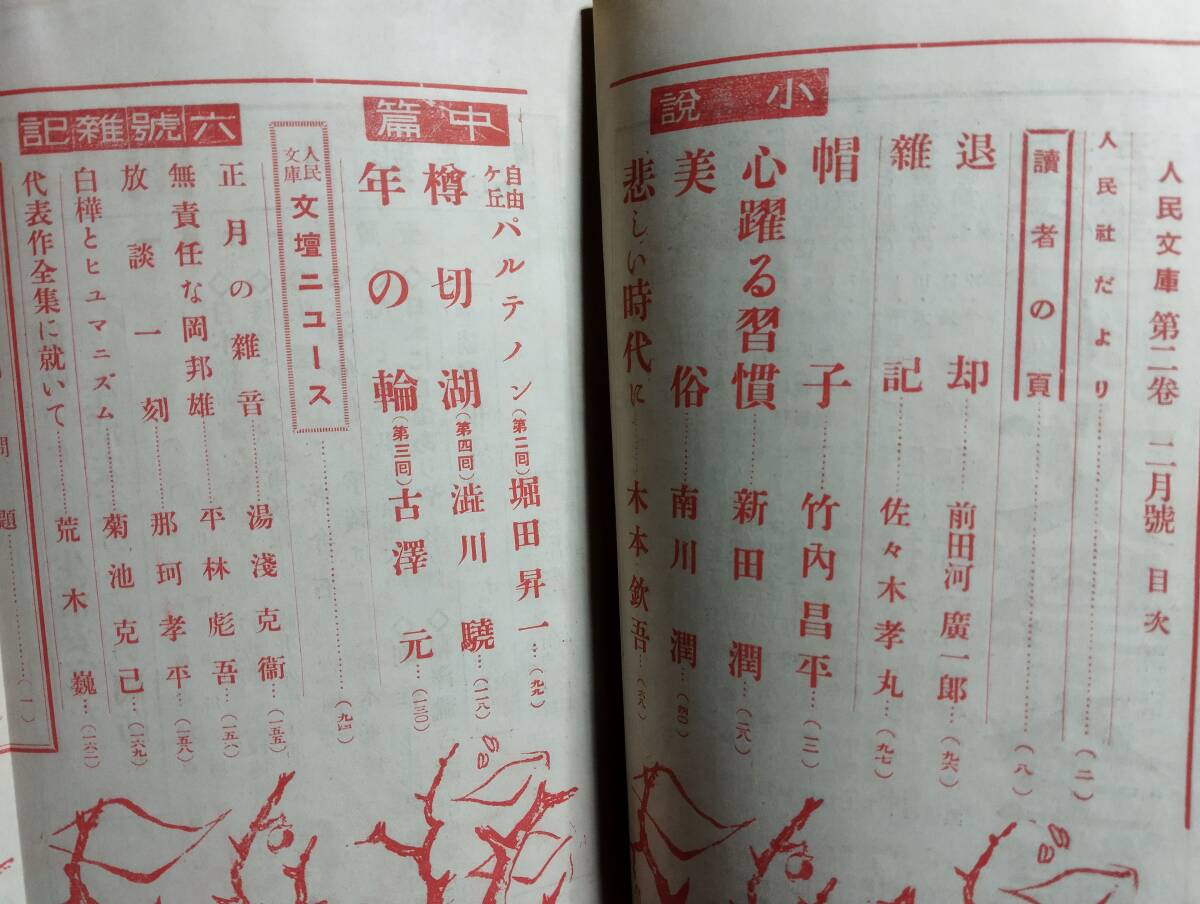 人民文庫 第二卷 二月號 目次
人民社だより……(二)
讀者の頁……(八)
退却……前田河廣一郎…(九六)
雜記……佐々木孝丸…(九七)
小說
帽子 竹內昌平…(一二)
心躍る習慣 新田潤…(二八)
美俗 南川潤…(四〇)
悲しい時代に……木本欽吾…(六八)
中篇
自由ケ丘パルテノン(第二囘)堀田昇一…(九九)
樽切湖(第四囘)澁川驍…(一一八)
年の輪(第三囘)古澤元…(一三〇)
人民文庫 文壇ニュース……(九四)
六號雜記
正月の雜音……湯淺克衞…(一五五)
無責任な岡邦雄……平林彪吾…(一五六)
放談一刻……那珂孝平…(一五八)
白樺とヒユマニズム……菊池克己…(一六九)
代表作全集に就いて……荒木巍…(一六二)
題……(一)